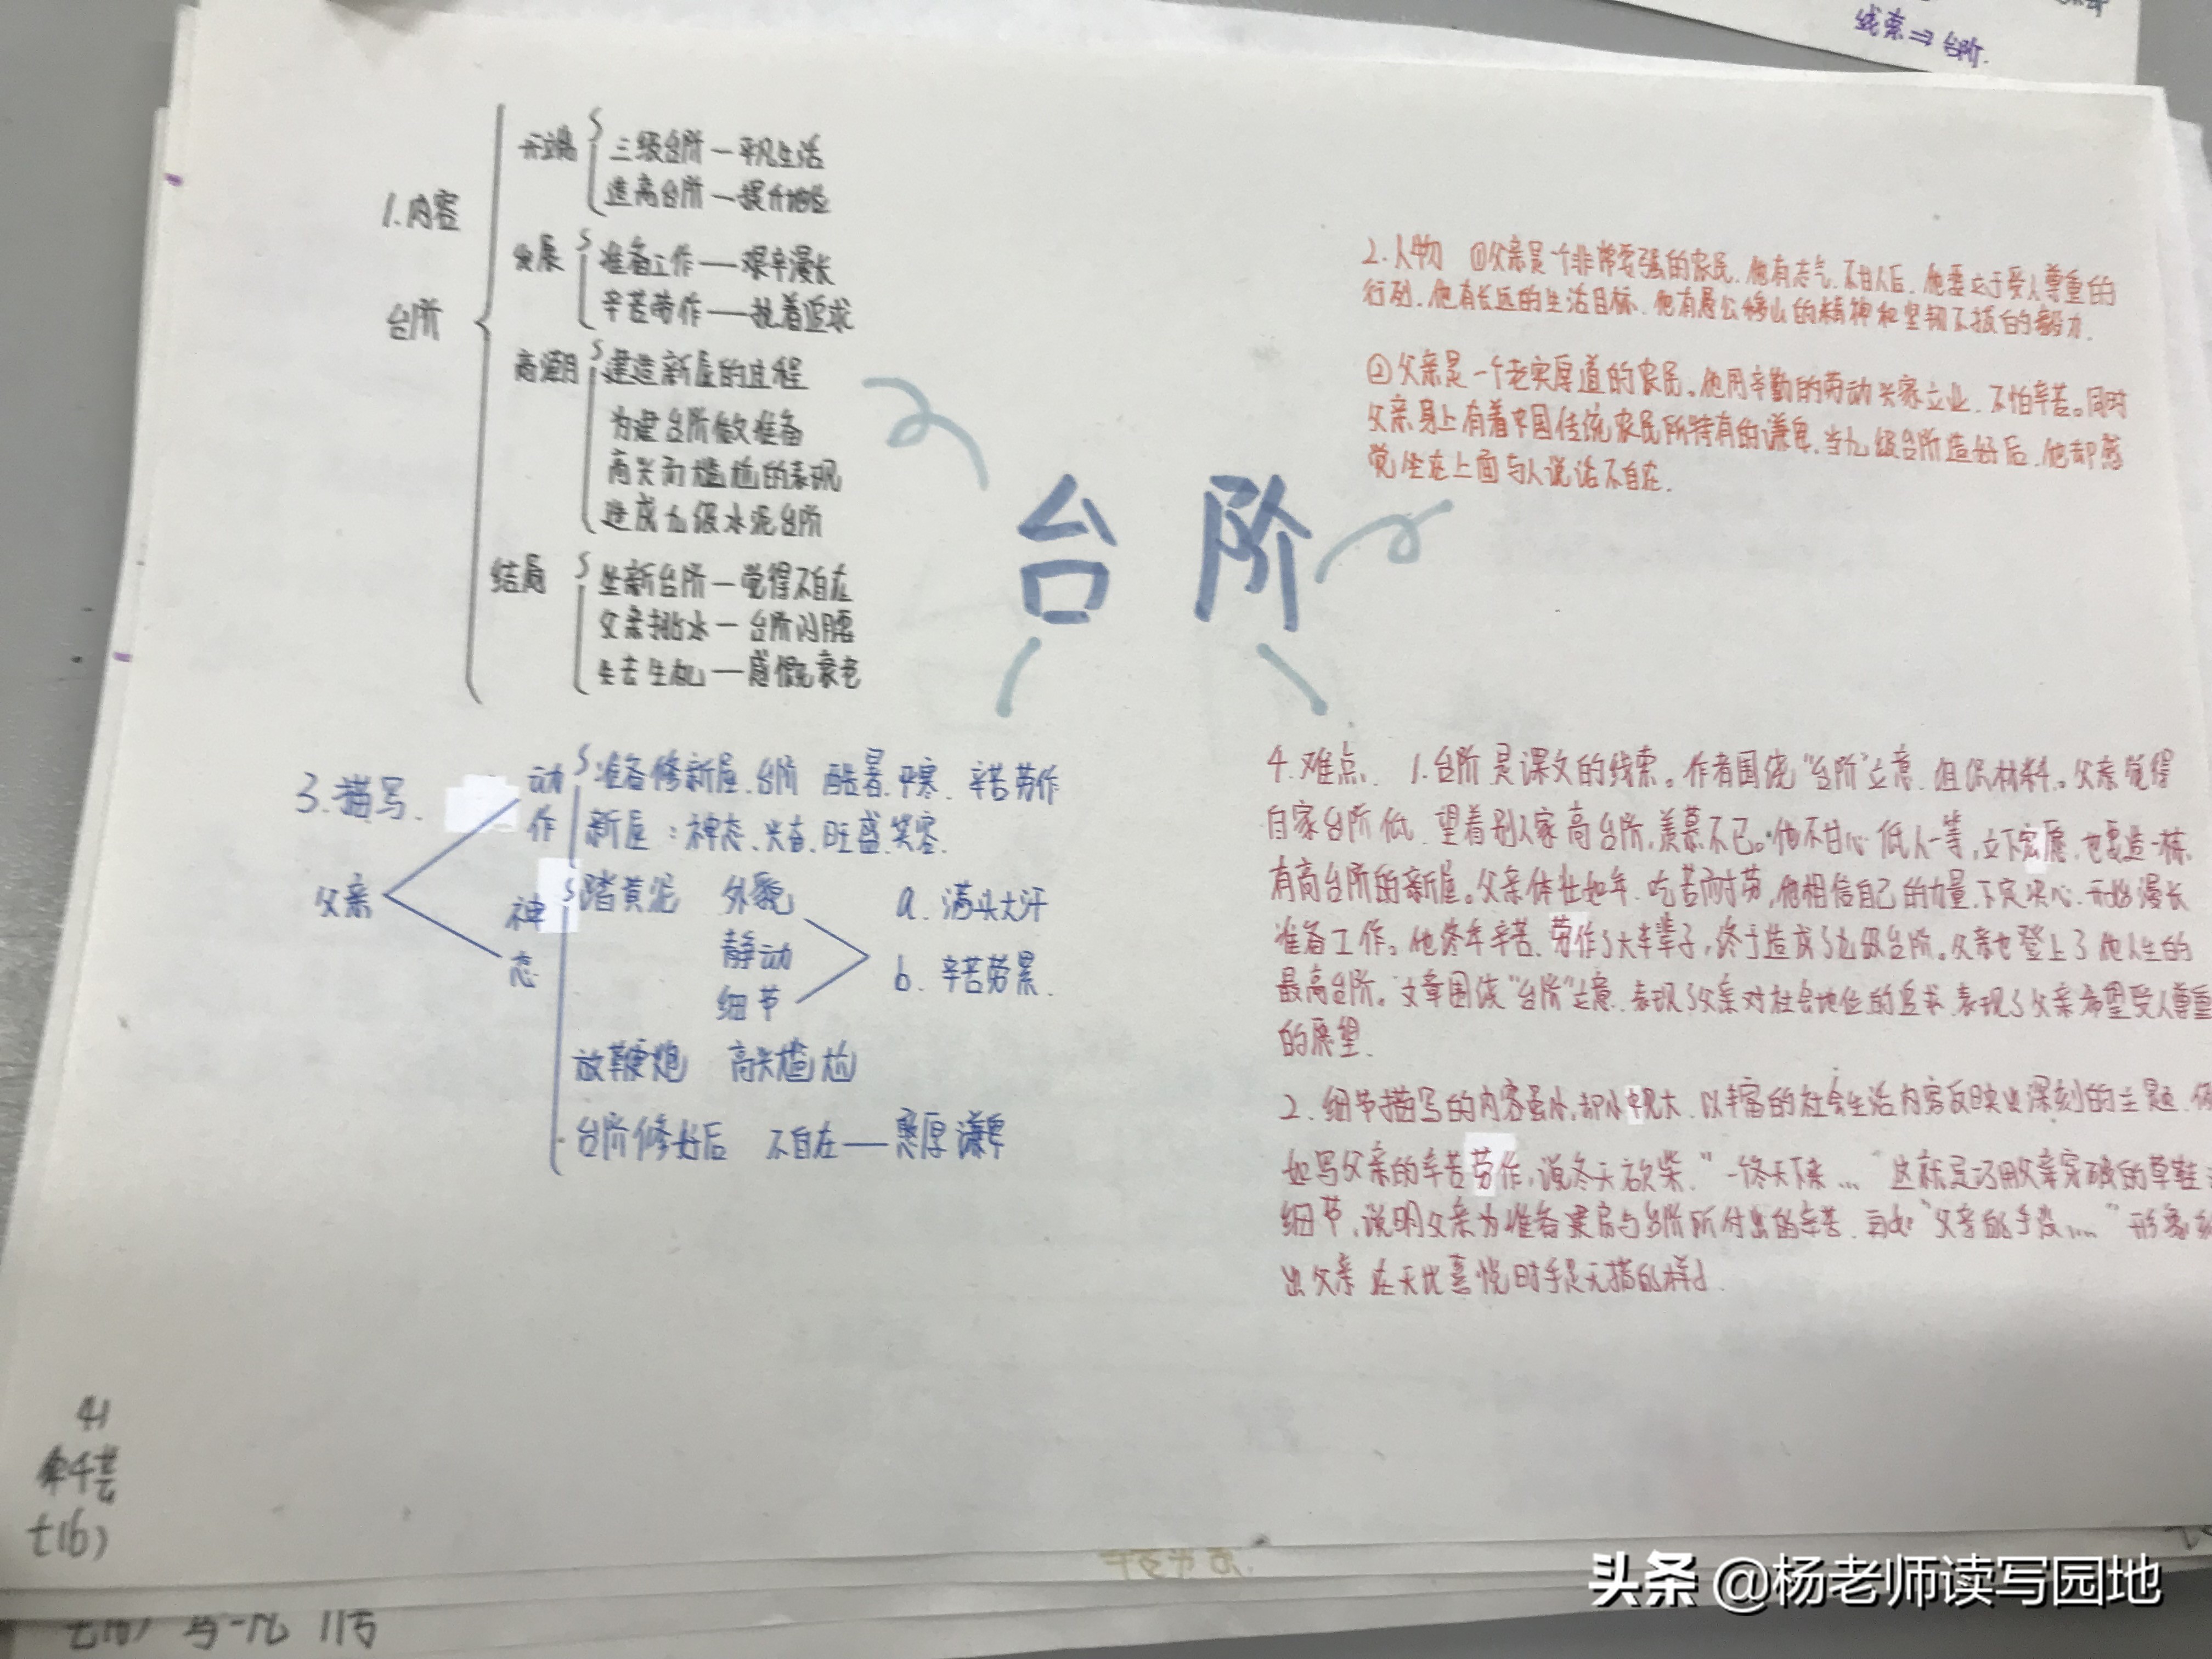 线索⇒台阶.
1.内容
台阶
开端
三级台阶—平凡生活
造高台阶—提升地位
发展
准备工作——艰辛漫长
辛苦劳作——执着追求
高潮
建造新屋的过程
为建台阶做准备
高兴而尴尬的表现
造成九级水泥台阶
结局
坐新台阶—觉得不自在
父亲挑水—台阶闪腰
失去生机—感慨衰老
台阶
2.人物 ①父亲是一个非常要强的农民.他有志气.不甘人后.他要立于受人尊重的
行列.他有长远的生活目标.他有愚公移山的精神和坚韧不拔的毅力.
②父亲是一个老实厚道的农民。他用辛勤的劳动兴家立业.不怕辛苦。同时
父亲身上有着中国传统农民所特有的谦卑.当九级台阶造好后.他却感
觉坐在上面与人说话不自在.
3.描写.
父亲
动作
准备修新屋.台阶 酷暑.平寒.辛苦劳作
新屋:神态、兴奋.旺盛.笑容.
神态
踏黄泥 外貌
静动
细节
a.满头大汗
b.辛苦劳累.
放鞭炮 高兴尴尬
台阶修好后 不自在——憨厚谦卑
4.难点. 1.台阶是课文的线索。作者围绕“台阶”立意.组织材料。父亲觉得
自家台阶低.望着别人家高台阶,羡慕不已。他不甘心低人一等,立下宏愿.也要造一栋
有高台阶的新屋。父亲体壮如牛.吃苦耐劳,他相信自己的力量.下定决心.开始漫长
准备工作。他终年辛苦、劳作了大半辈子,终于造成了九级台阶。父亲也登上了他人生的
最高台阶。文章围绕“台阶”立意.表现了父亲对社会地位的追求.表现了父亲希望受人尊重
的愿望.
2.细节描写的内容虽小,却小中见大.以丰富的社会生活内容反映出深刻的主题.
如写父亲的辛苦劳作,说冬天砍柴.“一冬天下来…”这就是巧用父亲穿破的草鞋
细节.说明父亲为准备建房与台阶所付出的辛苦.再如“父亲的手没....”形象
出父亲在无比喜悦时手足无措的样子.
41
七(6)
头条 @杨老师读写园地